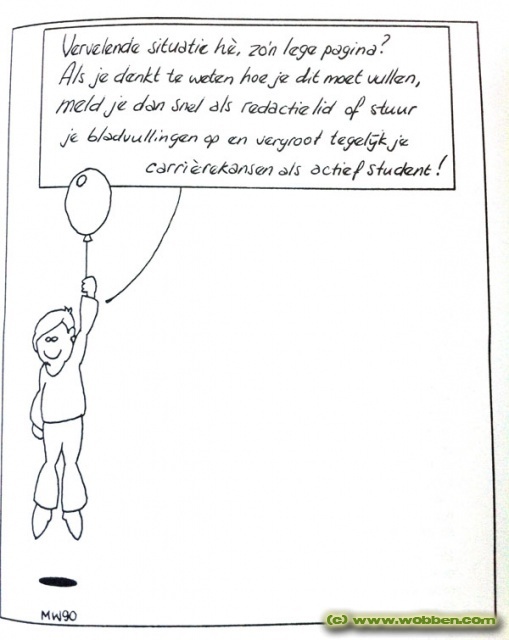 Vervelende situatie hè, zo'n lege pagina?
Als je denkt te weten hoe je dit moet vullen,
meld je dan snel als redactielid of stuur
je bladvullingen op en vergroot tegelijk je
carrièrekansen als actief student!
MW90
(c) www.wobben.com